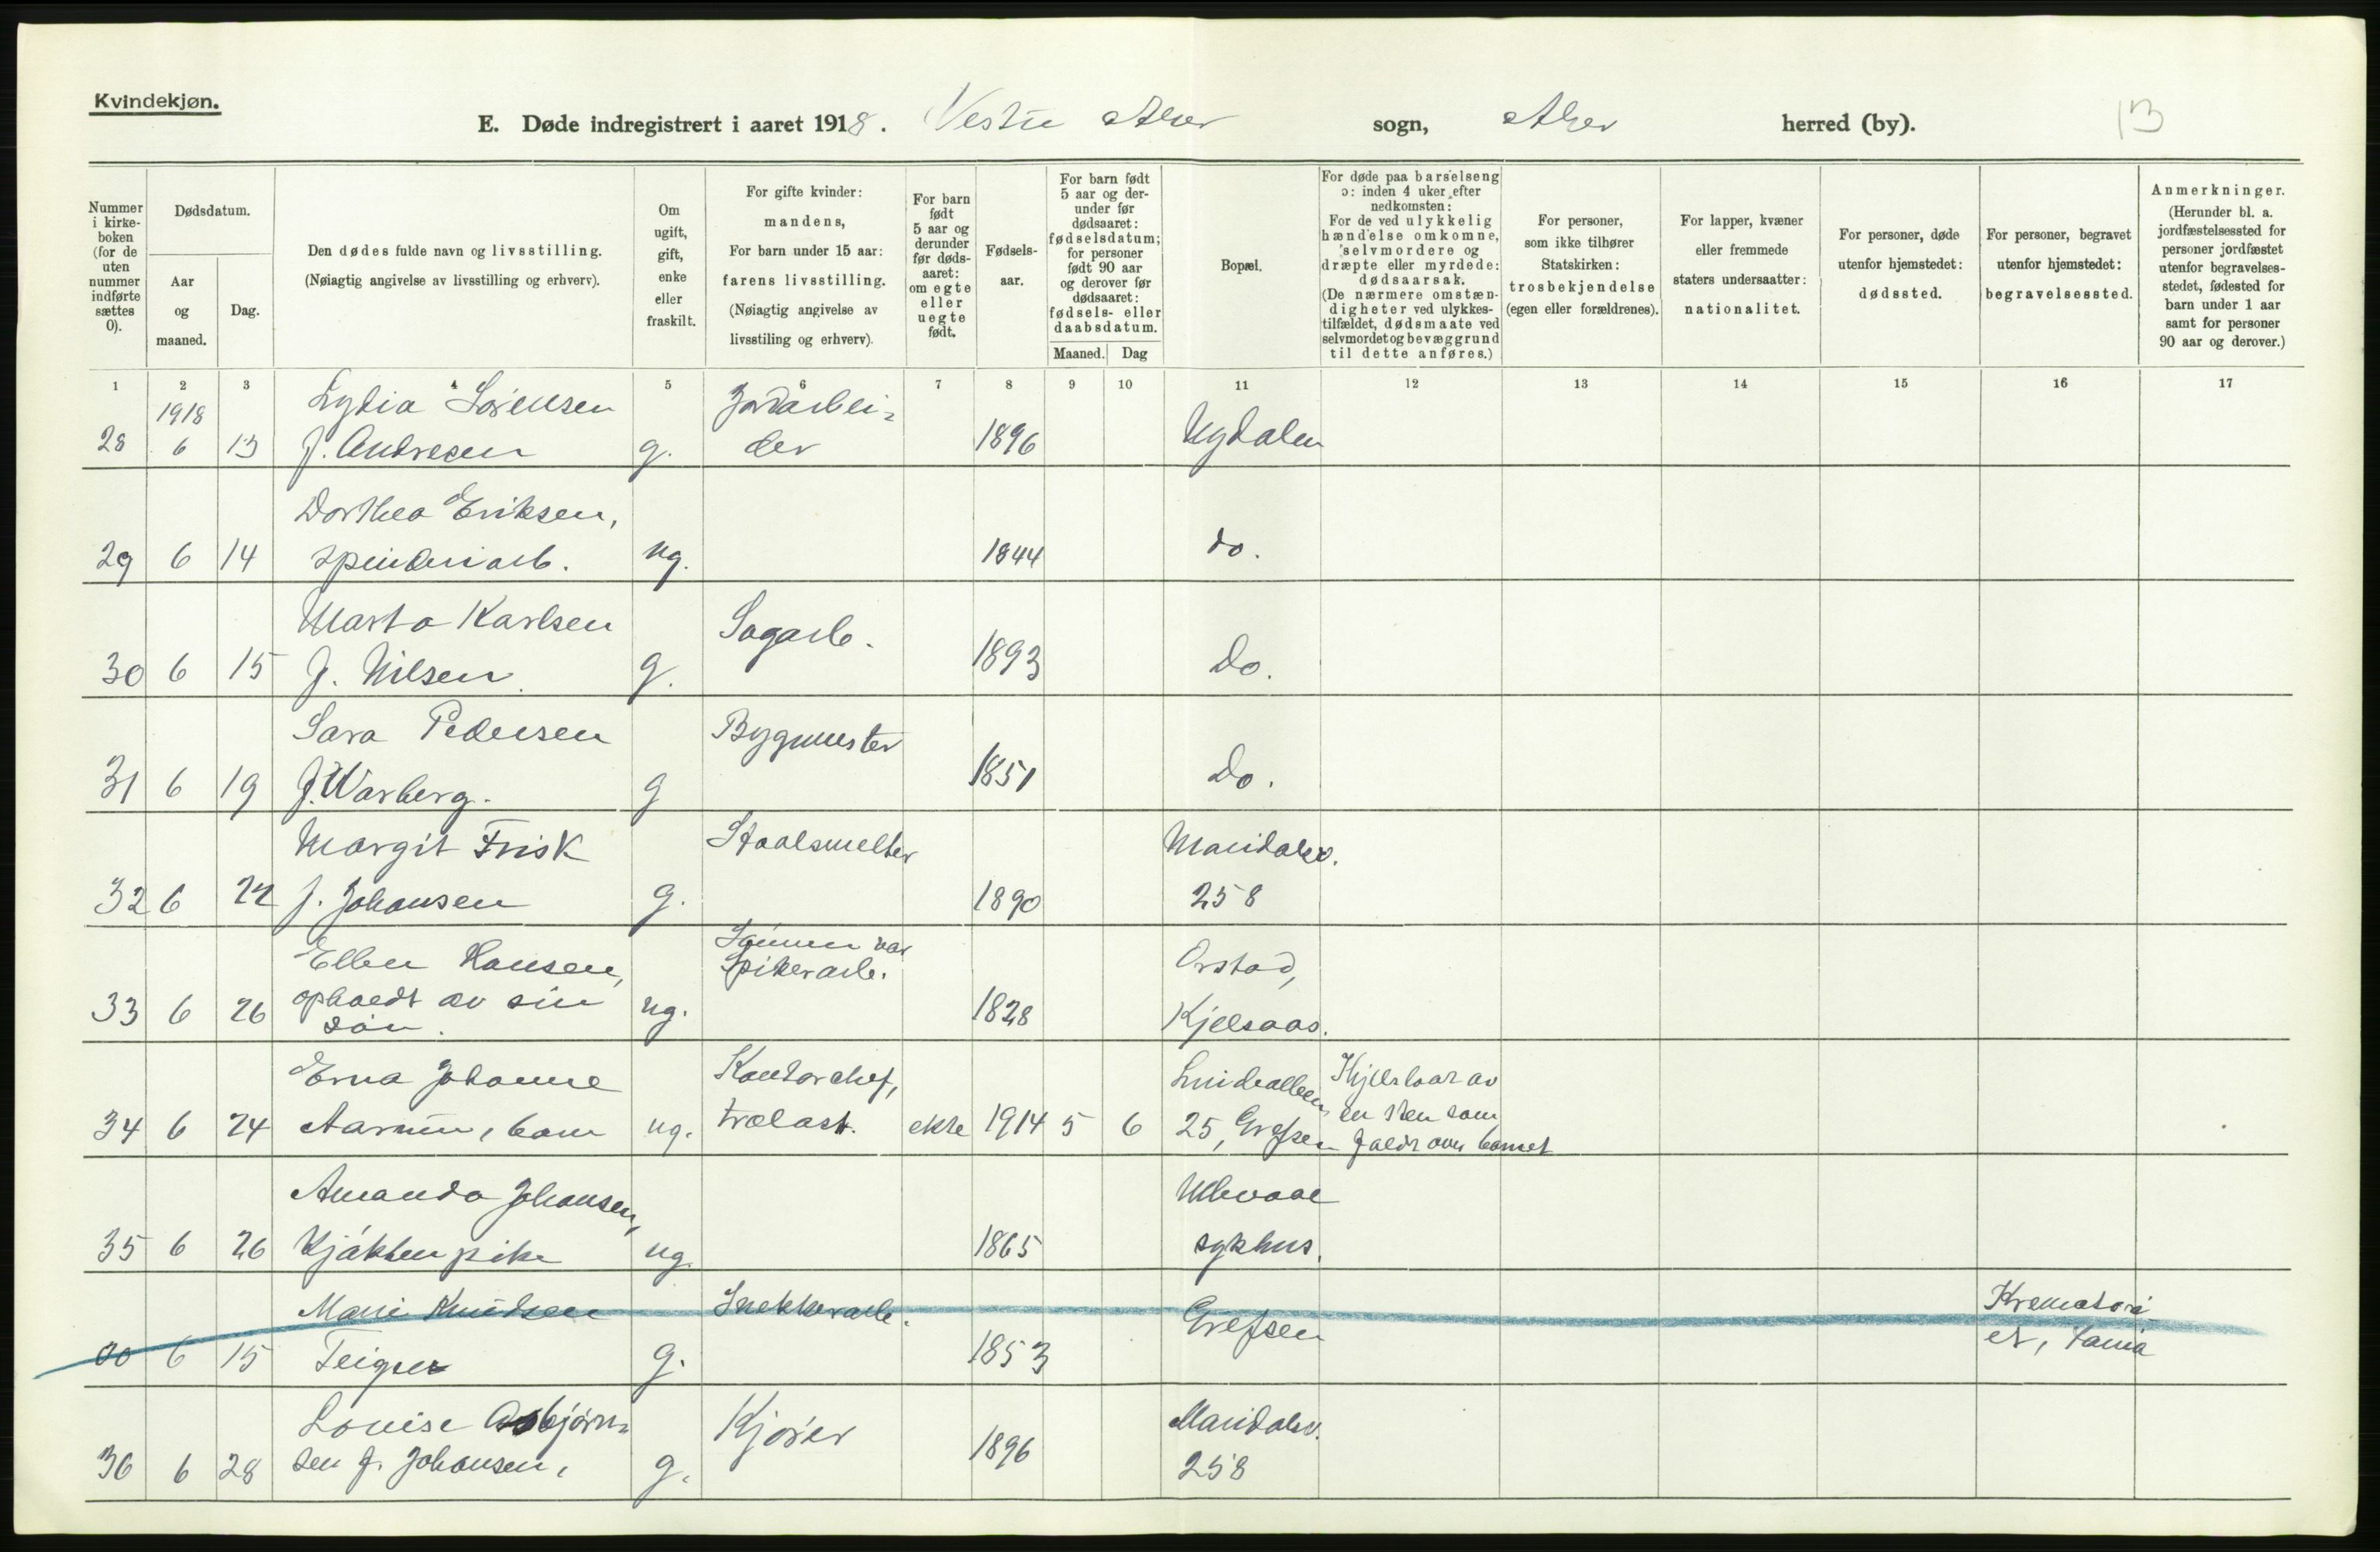 Kvindekjøn.
E. Døde indregistrert i aaret 1918. Vestre Aker sogn, Aker herred (by). 13
Nummer i kirke-boken (for de uten nummer indførte sættes 0).
Dødsdatum.
Aar og maaned.
Dag.
Den dødes fulde navn og livsstilling.
(Nøiagtig angivelse av livsstilling og erhverv).
Om ugift, gift, enke eller fraskilt.
For gifte kvinder:
mandens,
For barn under 15 aar:
farens livsstilling.
(Nøiagtig angivelse av
livsstiling og erhverv).
For barn født 5 aar og derunder før døds-aaret: om egte eller uegte født.
Fødsels-aar.
For barn født 5 aar og der-under før dødsaaret: fødselsdatum; for personer født 90 aar og derover før dødsaaret: fødsels- eller daabsdatum.
Maaned. Dag
Bopæl.
For døde paa barselseng
ɔ: inden 4 uker efter
nedkomsten:
For de ved ulykkelig
hændelse omkomne,
selvmordere og
dræpte eller myrdede:
dødsaarsak.
(De nærmere omstæn-
digheter ved ulykkes-
tilfældet, dødsmaate ved
selvmordet og bevæggrund
til dette anføres.)
For personer,
som ikke tilhører
Statskirken:
trosbekjendelse
(egen eller forældrenes).
For lapper, kvæner
eller fremmede
staters undersaatter:
nationalitet.
For personer, døde
utenfor hjemstedet:
dødssted.
For personer, begravet
utenfor hjemstedet:
begravelsessted.
Anmerkninger.
(Herunder bl. a.
jordfæstelsessted for
personer jordfæstet
utenfor begravelses-
stedet, fødested for
barn under 1 aar
samt for personer
90 aar og derover.)
1 2 3 4 5 6 7 8 9 10 11 12 13 14 15 16 17
1918 Lydia Sørensen Jordarbei=
28 6 13 f. Andresen g. der 1896 Nydalen
Dorthea Eriksen,
29 6 14 spinderiarb. ug. 1844 do.
Marta Karlsen Sagarb.
30 6 15 f. Nilsen g. 1893 Do.
Sara Pedersen Bygmester
31 6 19 f. Warberg. g 1851 Do.
Margit Frisk Staalsmelter Maridalsv.
32 6 22 f. Johansen g. 1890 258
Ellen Hansen, Sønnen var Spikerarb. Orstad,
33 6 26 opholdt av sin søn. ug. 1828 Kjelsaas.
Erna Johanne Kontorchef, Lindealleen Kjelslaat av
34 6 24 barn ug. trælast. ekte 1914 5 6 25, Grefsen en sten som
faldt over barnet
Amanda Johansen, Ullevaal
35 6 26 Kjøkkenpike ug. 1865 sykhus.
Marie Knudsen Snekkerarb. Grefsen Krematori-
00 6 15 g. 1853 et,
Louise Asbjørn= Kjører Maridalsv.
36 6 28 sen f. Johansen, g. 1896 258